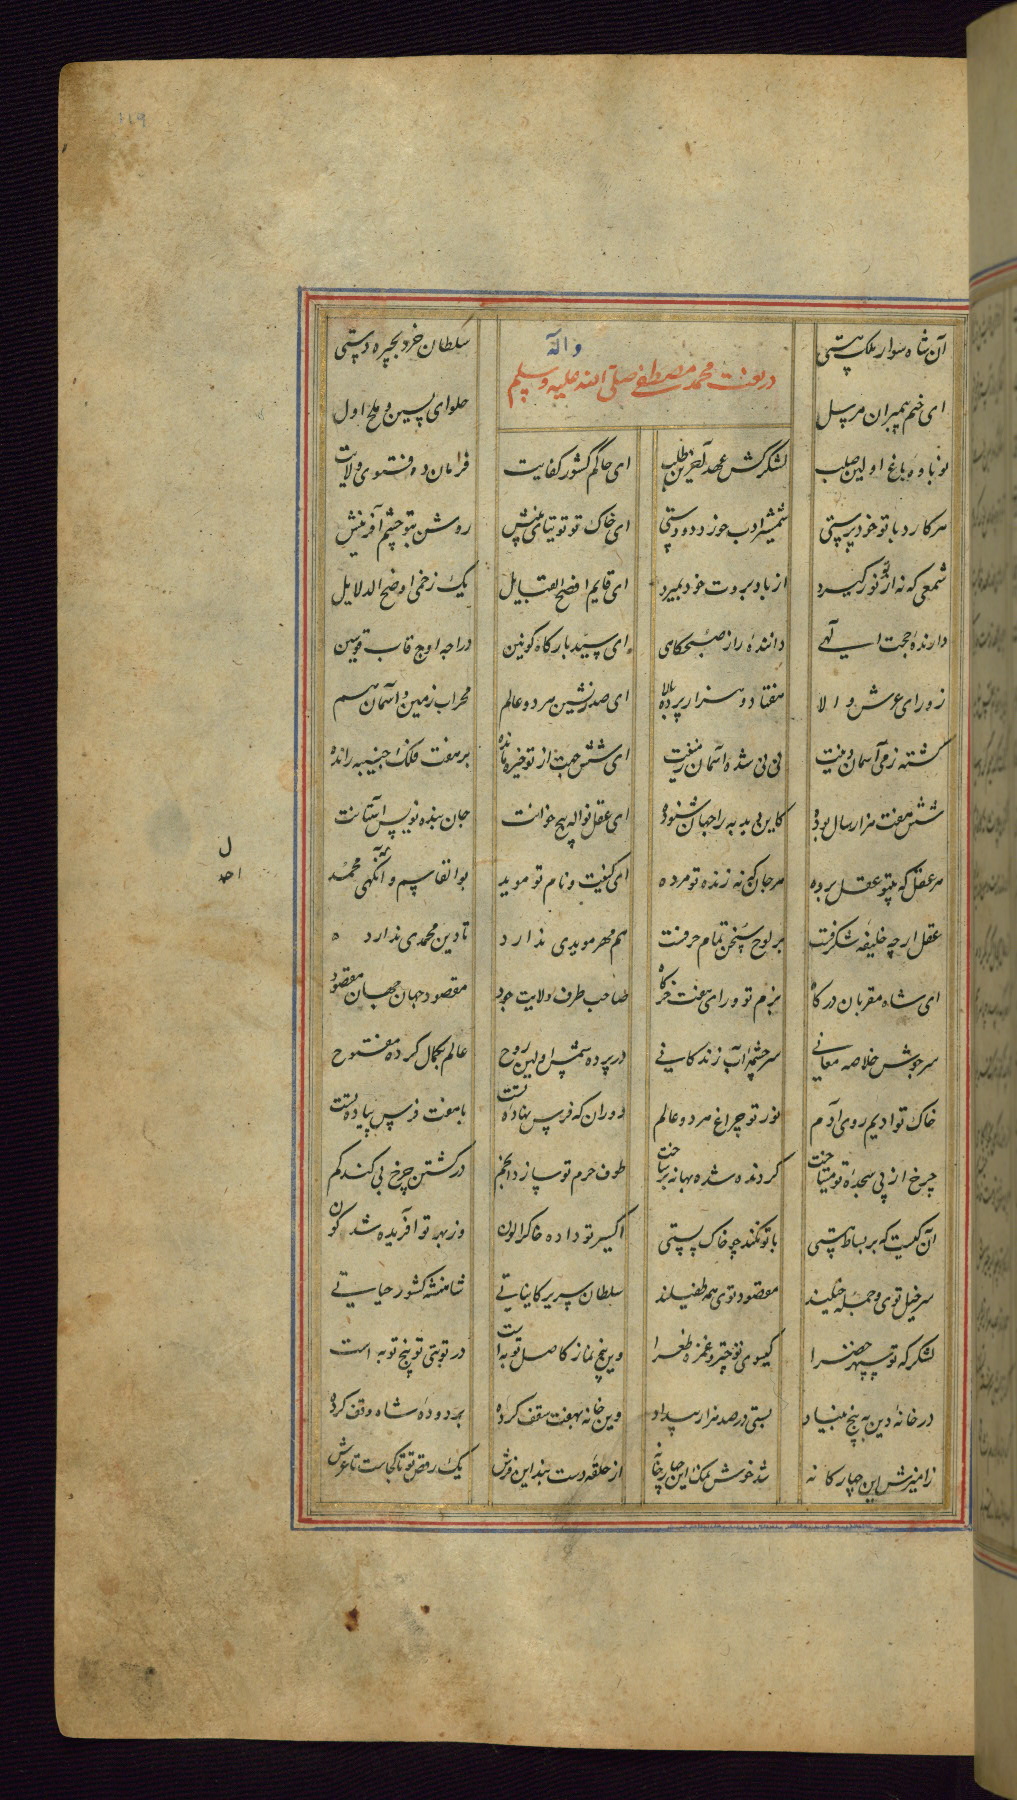 119
آن شاه سوار ملک هستی سلطان خرد بچیره دستی
واله
در نعت محمد مصطفی صلی الله علیه وسلم
ای ختم پیمبران مرسل حلوای پسین و ملح اول
نوباوه باغ اولین صلب لشکرکش عهد آخرین طلب ای حاکم کشور کفایت فرمان ده فتوی ولایت
هرکارد با تو خود پرستی شمشیر ادب خورد دو دستی ای خاک تو توتیای بینش روشن بتو چشم آفرینش
شمعی که نه از تو نور گیرد از باد بروت خود بمیرد ای قایم افصح القبایل یک زخمی اوضح الدلایل
دارنده حجت الهی داننده راز صبحگاهی ای سید بارگاه کونین در اجه اوج قاب قوسین
زورای عرش والا هفتاد و هزار پرده بالا ای صدرنشین هر دو عالم محراب زمین و آسمان هم
گشته زمی آسمان ز دینت نی نی شده آسمان زمینت ای شش جهت از تو خیره مانده بر هفت فلک جنیبه رانده
شش هفت هزار سال بوده کاین دبدبه را جهان شنوده ای عقل نواله پیچ خوانت جان بنده نویس آستانت
هر عقل که بیتو عقل برده هر جان که نه زنده تو مرده ای کنیت و نام تو موید بوالقاسم و آنگهی محمد
عقل ارچه خلیفه شگرفست بر لوح سخن تمام حرفست هم مهر مویدی ندارد تا دین محمدی ندارد
ای شاه مقربان درگاه بزم تو ورای هفت خرگاه صاحب طرف ولایت جود مقصود جهان جهان مقصود
سرجوش خلاصه معانی سرچشمه آب زندگانی در پرده شمس اولین روح عالم بکمال کرده مفتوح
خاک تو ادیم روی آدم نور تو چراغ هر دو عالم دوران که فرس نهاده تست با هفت فرس پیاده تست
چرخ از پی سجده تو میتاخت گردنده شده بهانه بر ساخت طوف حرم تو سازد انجم در گشتن چرخ پی کند گم
آن کیست که بر بساط هستی با تو نکند چو خاک پستی اکسیر تو داده خاک را لون وز بهر تو آفریده شد کون
سرخیل توی و جمله خیلند مقصود توی همه طفیلند سلطان سریر کایناتی شاهنشه کشور حیاتی
لشکرگه تو سپهر خضرا گیسوی تو چتر و غمزه طغرا وین پنج نماز کاصل توبه است در نوبتی تو پنج نوبه است
در خانه دین به پنج بنیاد بستی در صد هزار بیداد وین خانه بهفت سقف کرده بر دوده شاه وقف کرده
زامیزش این چارگانه شد خوش نمک این چار خانه از حلقه دست بند این فرش یک رقص تو تا کجاست تا عرش